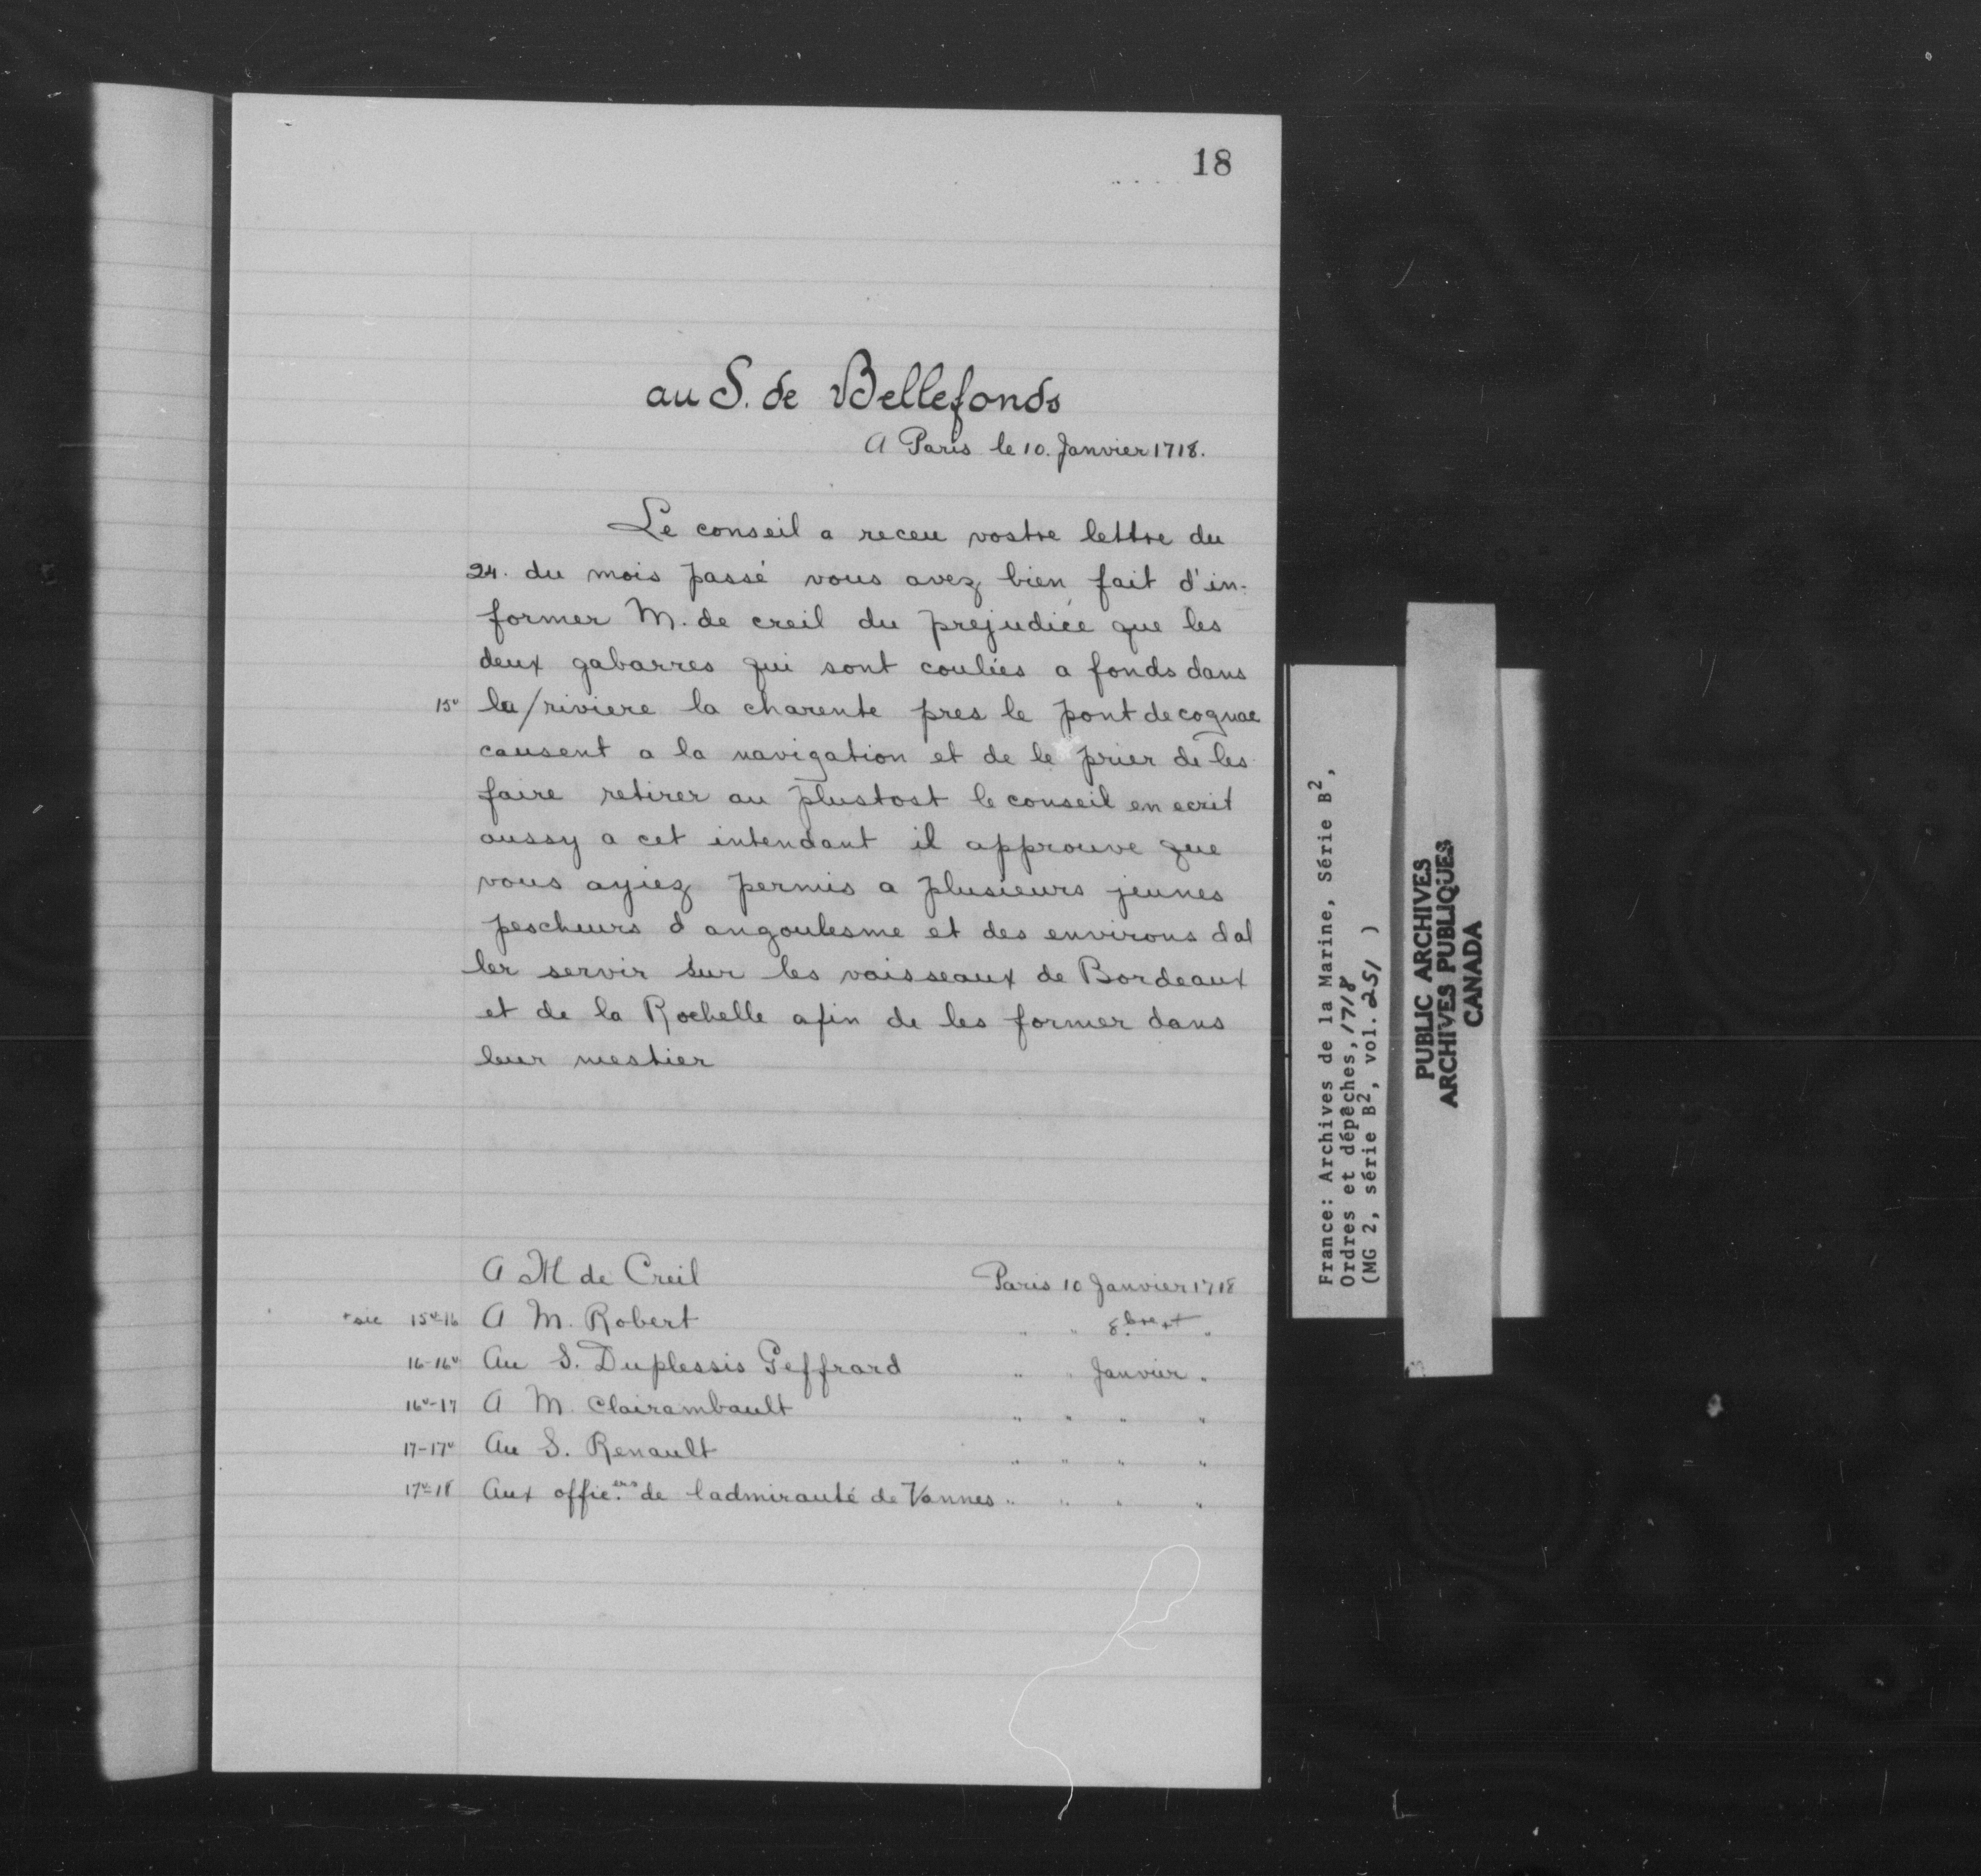 18
au S. de Bellefonds
A Paris le 10. Janvier 1718.
Le conseil a receu vostre lettre du
24. du mois passé vous avez bien fait d'in-
former M. de creil du prejudice que les
deux gabarres qui sont coulées a fonds dans
15v la/riviere la charente pres le pont de cognac
causent a la navigation et de le prier de les
faire retirer au plustost le conseil en ecrit
aussy a cet intendant il approuve que
vous ayiez permis a plusieurs jeunes
pescheurs d angoulesme et des environs dal
ler servir sur les vaisseaux de Bordeaux
et de la Rochelle afin de les former dans
leur mestier
A M de Creil Paris 10 Janvier 1718
+sic 15v-16 A M. Robert " " 8.bre+ "
16-16v Au S. Duplessis Geffrard " " Janvier "
16v-17 A M. Clairambault " " " "
17-17v Au S. Renault " " " "
17v-18 Aux offic.ers de ladmirauté de Vannes " " " "
France: Archives de la Marine, Série B2,
Ordres et dépêches, 1718
(MG 2, série B2, vol. 251 )
PUBLIC ARCHIVES
ARCHIVES PUBLIQUES
CANADA